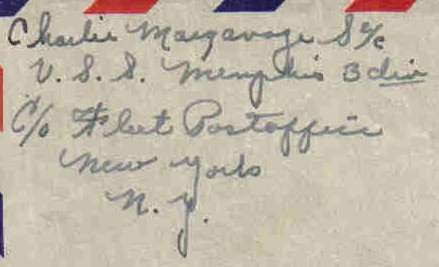 Charlie Margavage S 2/c
U. S. S. Memphis 3 div
C/o Fleet Postoffice
New York
N. Y.